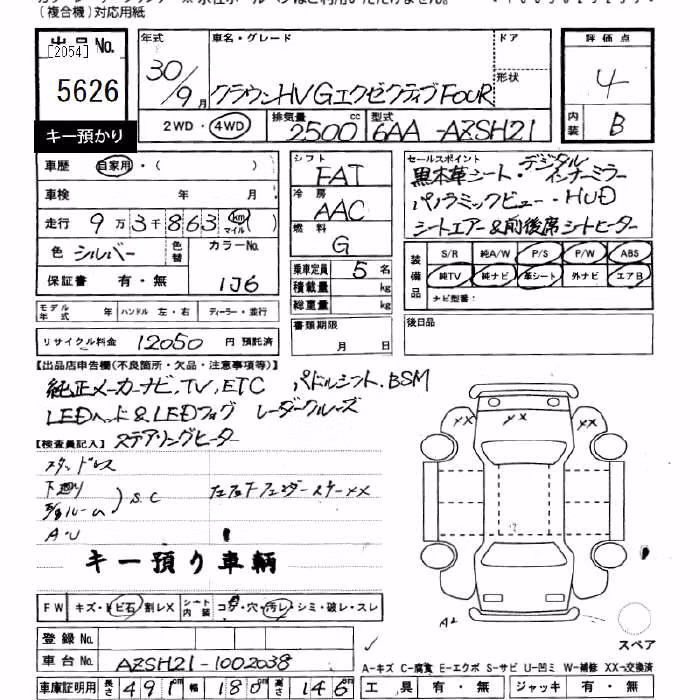 (複合機)対応用紙
出品No.
[2054]
5626
キー預かり
年式
30/9月
車名・グレード
クラウンHV Gエクゼクティブ FOUR
ドア
形状
評価点
4
内装
B
2WD・4WD
排気量
2500 cc
型式
6AA-AZSH21
車歴 自家用・( )
車検 年 月
走行 9万3千863 km マイル( )
色 シルバー
色替
カラーNo.
1J6
保証書 有・無
シフト
FAT
冷房
AAC
燃料
G
乗車定員 5名
積載量 kg
総重量 kg
書類期限
月 日
セールスポイント
黒本革シート・デジタルインナーミラー
パノラミックビュー・HUD
シートエアー&前後席シートヒーター
装備品
S/R 純A/W P/S P/W ABS
純TV 純ナビ 革シート 外ナビ エアB
ナビ型番:
モデル年式 年 ハンドル 左・右 ディーラー・並行
後日品
リサイクル料金 12050 円 預託済
【出品店申告欄(不良箇所・欠品・注意事項等)】
純正メーカーナビ,TV,ETC パドルシフト.BSM
LEDヘッド&LEDフォグ レーダークルーズ
ステアリングヒーター
【検査員記入】
スタッドレス
下廻り
S.C
A・U
キー預り車輌
FW キズ・トビ石・割レX シート内装 コゲ・穴・汚レ・シミ・破レ・スレ
登録No.
車台No. AZSH21-1002038
車庫証明用 長さ 491cm 幅 180 高さ 146cm
××
××
××
A2
スペア
A-キズ C-腐食 E-エクボ S-サビ U-凹ミ W-補修 XX-交換済
工具 有・無 ジャッキ 有・無